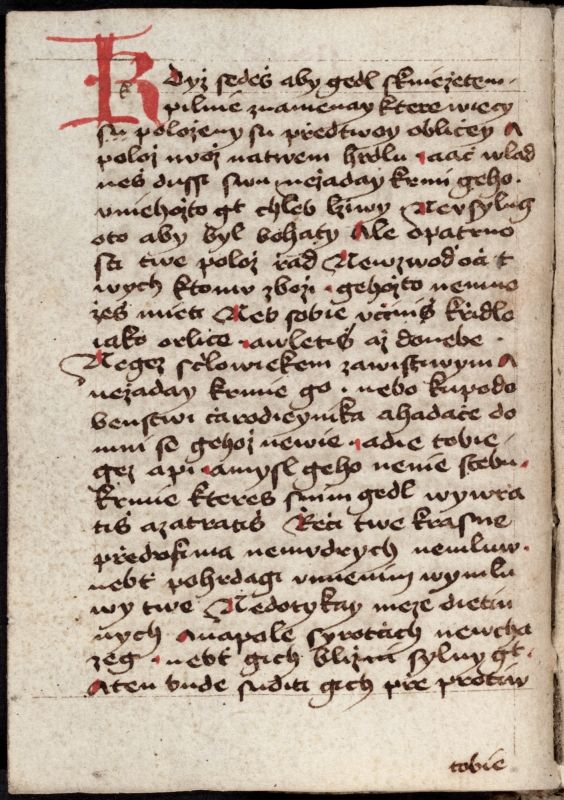 Kdyż sedeś aby gedl skniezetem·
pilnie znamenay ktere wiecy
su polożeny su předtwoy obliczey A
poloż nuoż natwem hrdlu aač wlad
neś dussi swu neżaday krmi geho·
vniehożto gt chleb lżiwy Nersylug
oto aby byl bohaty Ale opatrno
sti twe poloż rad Newzwod oči t
wych ktomu zbożi · gehożto nemuo
żeś mieti Neb sobie včiniś křidlo
iako orlice · awletiś aż donebe ·
Negez sčlowiekem zawistiwym A
neżaday krmie go · nebo kupodo
benstwi čarodieynika ahadače do
mni se gehoż newie · adie tobie ·
gez api · amysl geho nenie stebu ·
Krmie ktereś snim gedl wywra
tiś azatratiś Řeči twe krasne
předrosima nemudrych nemluw ·
nebt pohrdagi vmienim wymlu
wy twe Nedotykay meze dietin
nych Anapole syrotčich newcha
zeg · nebt gich bliżni sylny gt ·
Aten bude suditi gich při protiw
tobie